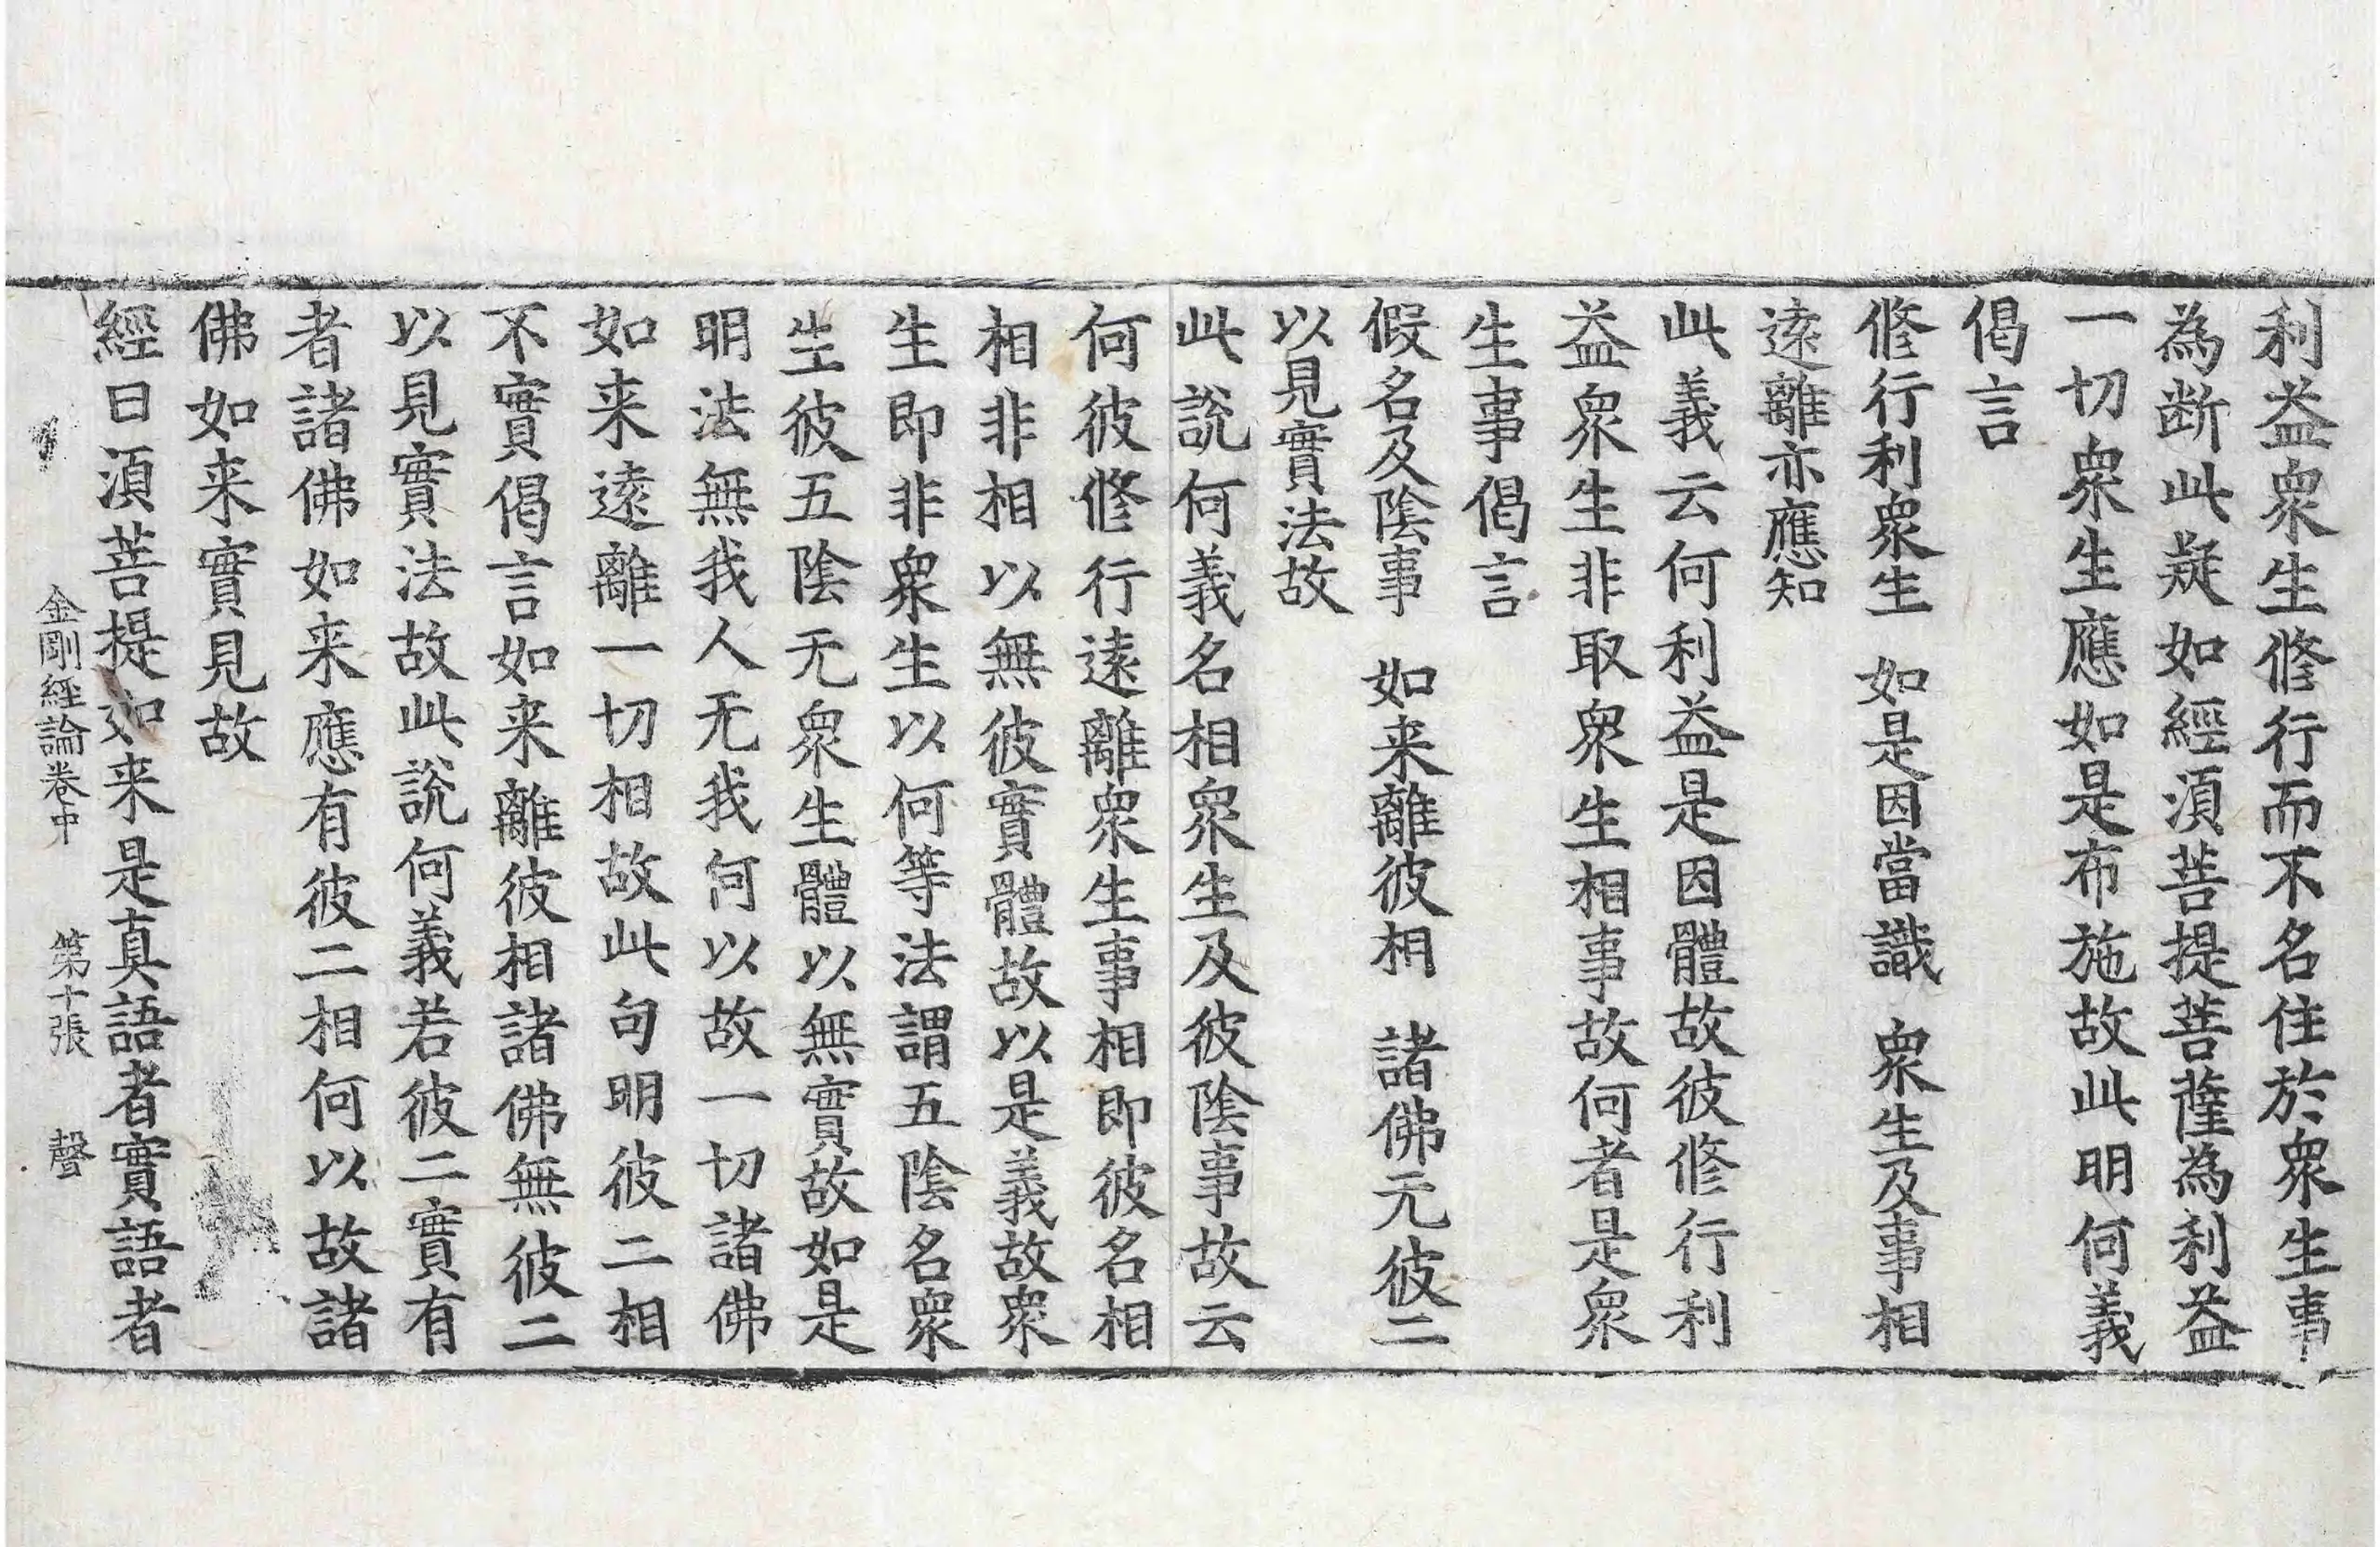 利益衆生修行而不名住於衆生事
為断此疑如經湏菩提菩薩為利益
一切衆生應如是布施故此明何義
偈言
修行利衆生　如是因當識　衆生及事相
遠離亦應知
此義云何利益是因體故彼修行利
益衆生非取衆生相事故何者是衆
生事偈言
假名及陰事　如来離彼相　諸佛无彼二
以見實法故
此說何義名相衆生及彼陰事故云
何彼修行遠離衆生事相即彼名相
相非相以無彼實體故以是義故衆
生即非衆生以何等法謂五陰名衆
生彼五陰无衆生體以無實故如是
明法無我人无我何以故一切諸佛
如来遠離一切相故此句明彼二相
不實偈言如来離彼相諸佛無彼二
以見實法故此說何義若彼二實有
者諸佛如来應有彼二相何以故諸
佛如来實見故
經曰湏菩提如来是真語者實語者
金剛經論卷中　第十張　聲